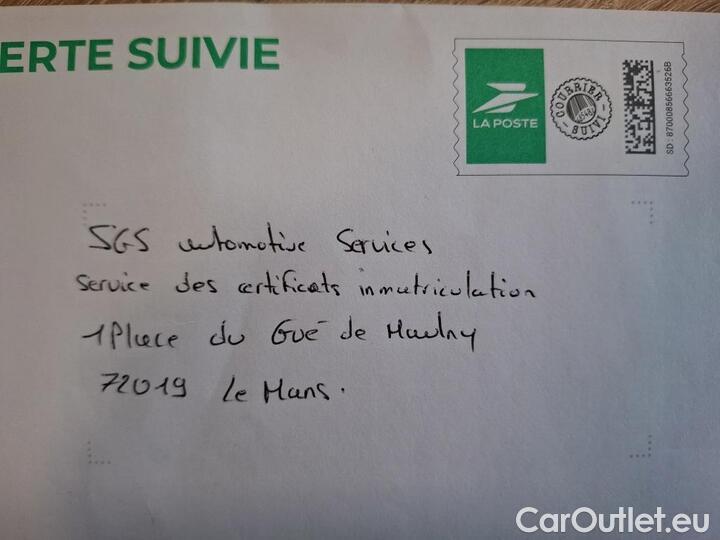 ERTE SUIVIE
LA POSTE
COURRIER SUIVI
SD : 87000856663526B
SGS automotive Services
Service des certificats inmatriculation
1 Place du Gué de Maulny
72019 Le Mans.
CarOutlet.eu